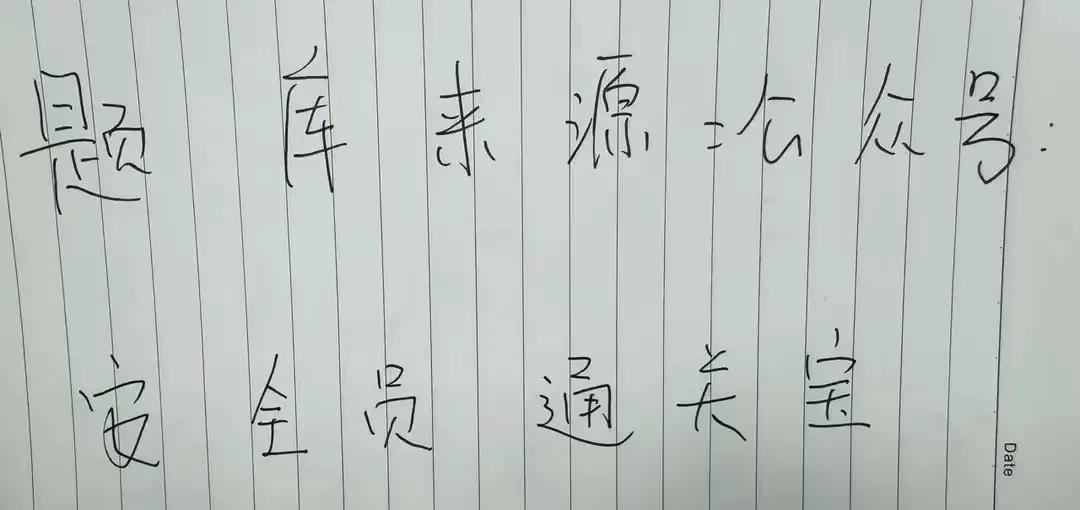 题库来源：公众号：
安全员通关宝
Date